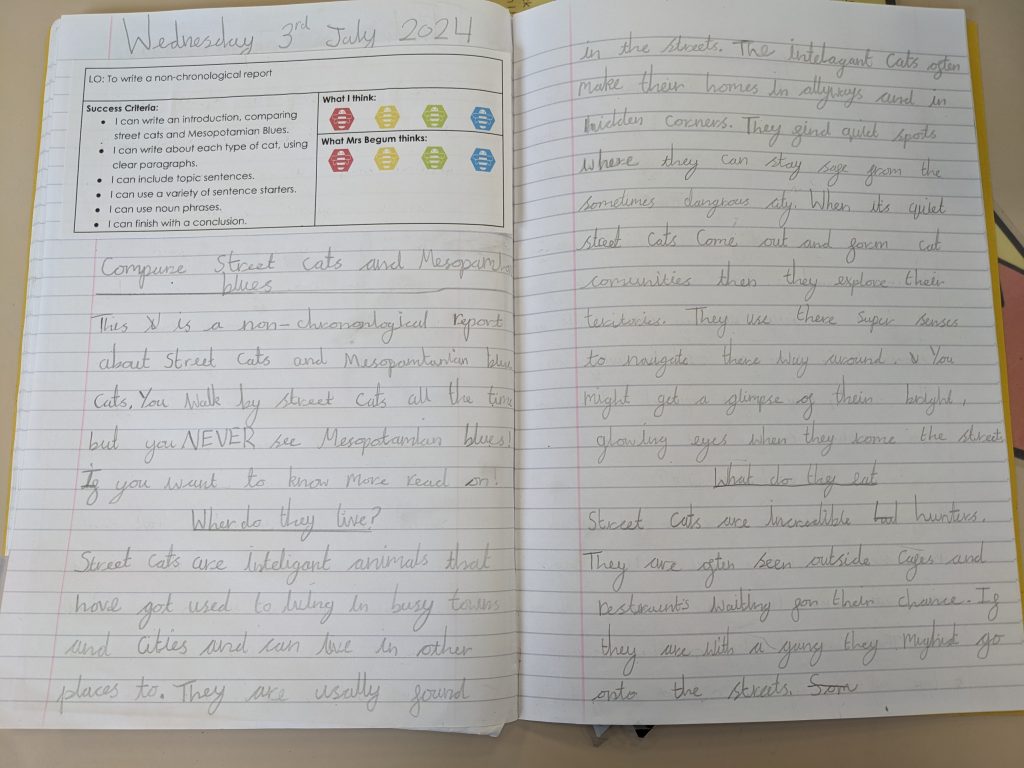 Wednesday 3rd July 2024
LO: To write a non-chronological report
Success Criteria:
• I can write an introduction, comparing
street cats and Mesopotamian Blues.
• I can write about each type of cat, using
clear paragraphs.
• I can include topic sentences.
• I can use a variety of sentence starters.
• I can use noun phrases.
• I can finish with a conclusion.
What I think:
What Mrs Begum thinks:
Compare Street Cats and
blues
This is a non-chrononlogical report
about Street Cats and Mesopamtanian blue
Cats, You Walk by street Cats all the time
but you NEVER see Mesopotamian blues!
If you want to know more read on!
Wher do they live?
Street Cats are inteligant animals that
have got used to living in busy towns
and Cities and can live in other
places to. They are usally found
in the streets. The intelagant Cats often
make their homes in allyways and in
hidden corners. They find quiet spots
where they can stay safe from the
sometimes dangrous city. When its quiet
street cats Come out and form cat
comunities then they explore their
teritories. They use there super senses
to navigate there way around. You
might get a glimpse of their bright,
glowing eyes when they rome the streets
What do they eat
Street Cats are incredible hunters.
They are often seen outside Cafes and
restraunts waiting for their chance. If
they are with a gang they might go
onto the streets. Som